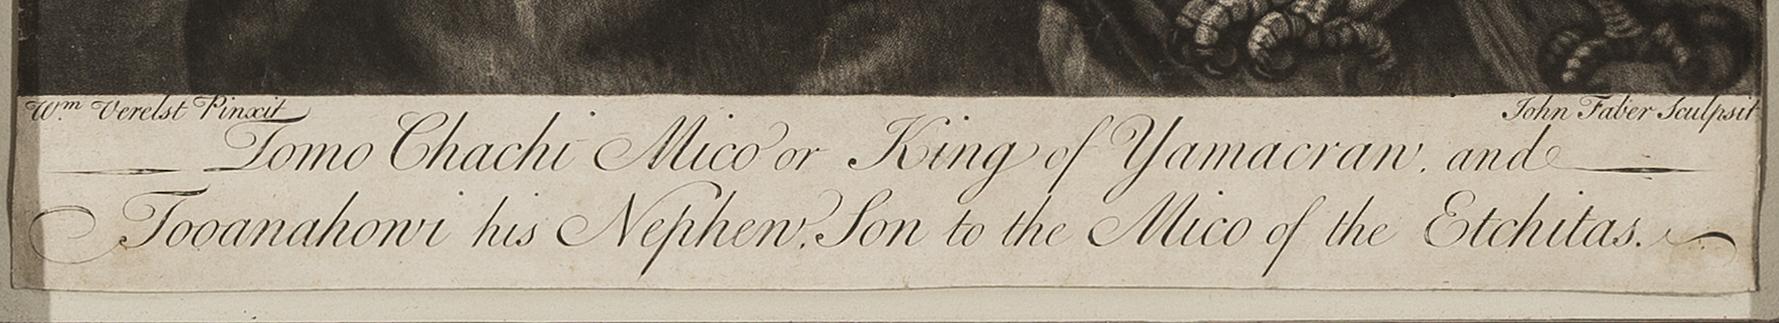 Wm. Verelst Pinxit
John Faber Sculpsit
Tomo Chachi Mico or King of Yamacraw, and
Tooanahowi his Nephew, Son to the Mico of the Etchitas.